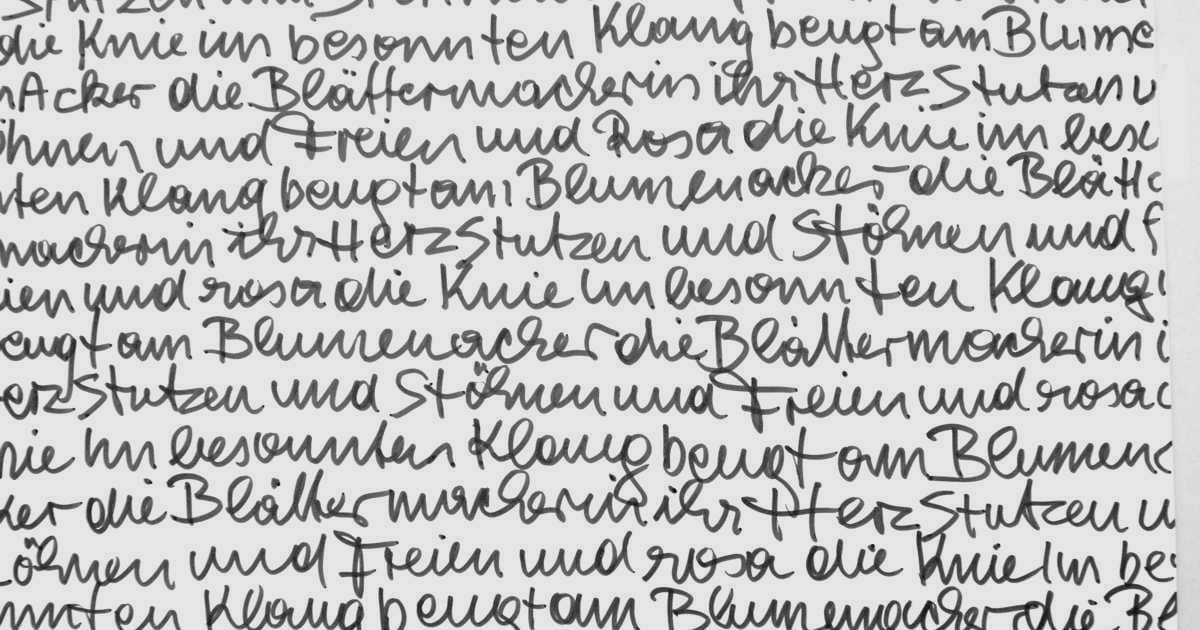 die Knie im besonnten Klang beugt am Blume
nAcker die Blättermacherin ihr Herz Stutzen u
öhnen und Freien und Rosa die Knie im beso
nten Klang beugt am Blumenacker die Blätte
macherin ihr Herz Stutzen und Stöhnen und F
ien und rosa die Knie im besonnten Klang
eugt am Blumenacker die Blättermacherin i
erz Stutzen und Stöhnen und Freien und rosa d
nie im besonnten Klang beugt am Blumena
ker die Blättermacherin ihr Herz Stutzen u
öhnen und Freien und rosa die Knie im be
nnten Klang beugt am Blumenacker die Bl